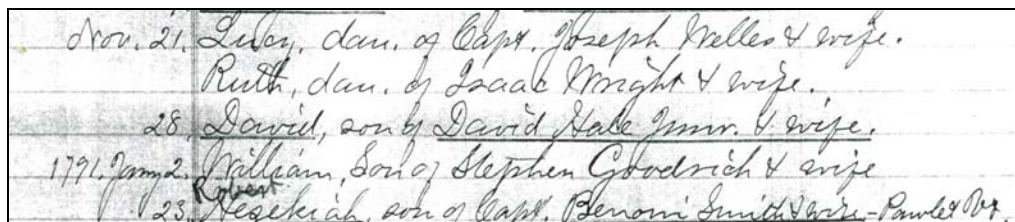 Nov. 21. Lucy, dau. of Capt. Joseph Welles & wife.
Ruth, dau. of Isaac Wright & wife.
28. David, son of David Hale Junr. & wife.
1791. Jany 2. William, Son of Stephen Goodrich & wife
Robert
23. Hezekiah, son of Capt. Benoni Smith & wife - Pawlet Vt.